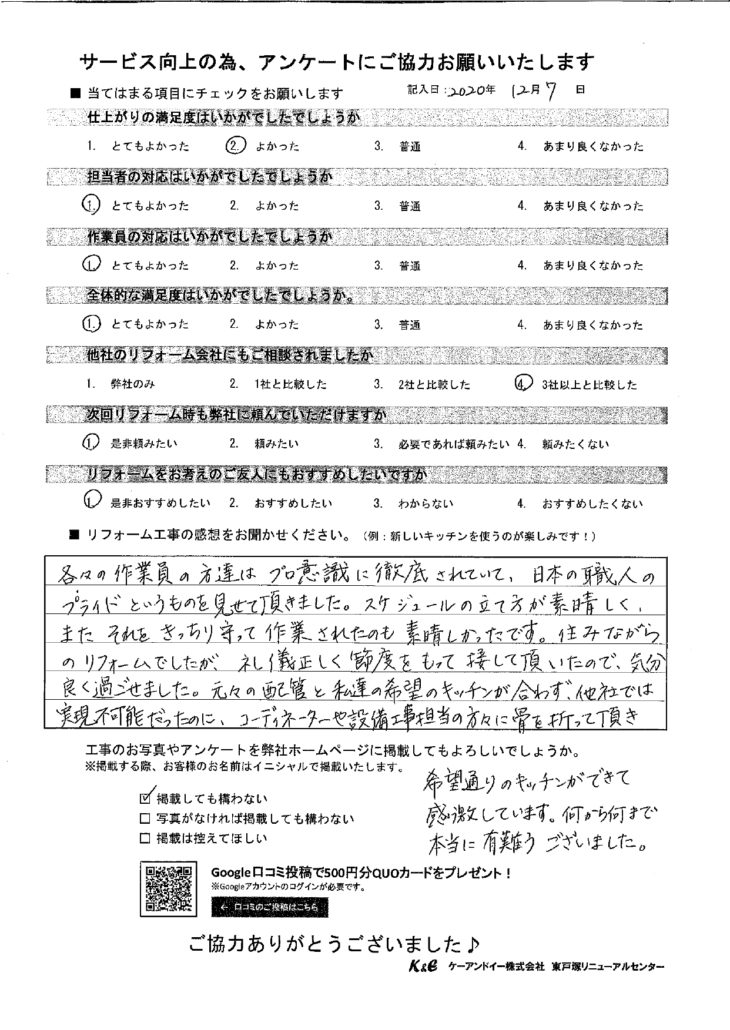 サービス向上の為、アンケートにご協力お願いいたします
■ 当てはまる項目にチェックをお願いします 記入日：2020年 12月 7 日
仕上がりの満足度はいかがでしたでしょうか
1. とてもよかった 2. よかった 3. 普通 4. あまり良くなかった
担当者の対応はいかがでしたでしょうか
1. とてもよかった 2. よかった 3. 普通 4. あまり良くなかった
作業員の対応はいかがでしたでしょうか
1. とてもよかった 2. よかった 3. 普通 4. あまり良くなかった
全体的な満足度はいかがでしたでしょうか。
1. とてもよかった 2. よかった 3. 普通 4. あまり良くなかった
他社のリフォーム会社にもご相談されましたか
1. 弊社のみ 2. 1社と比較した 3. 2社と比較した 4. 3社以上と比較した
次回リフォーム時も弊社に頼んでいただけますか
1. 是非頼みたい 2. 頼みたい 3. 必要であれば頼みたい 4. 頼みたくない
リフォームをお考えのご友人にもおすすめしたいですか
1. 是非おすすめしたい 2. おすすめしたい 3. わからない 4. おすすめしたくない
■ リフォーム工事の感想をお聞かせください。（例：新しいキッチンを使うのが楽しみです！）
各々の作業員の方達は プロ意識に徹底されていて、日本の職人の
プライドというものを見せて頂きました。スケジュールの立て方が素晴しく、
また それを きっちり守って 作業されたのも 素晴しかったです。住みながら
のリフォームでしたが、礼儀正しく 節度をもって 接して頂いたので、気分
良く過ごせました。元々の配管と私達の希望のキッチンが合わず、他社では
実現不可能だったのに、コーディネーターや設備工事担当の方々に骨を折って頂き
工事のお写真やアンケートを弊社ホームページに掲載してもよろしいでしょうか。
※掲載する際、お客様のお名前はイニシャルで掲載いたします。
希望通りのキッチンができて
感激しています。何から何まで
本当に有難うございました。
☑ 掲載しても構わない
□ 写真がなければ掲載しても構わない
□ 掲載は控えてほしい
Google口コミ投稿で500円分QUOカードをプレゼント！
※Googleアカウントのログインが必要です。
← 口コミのご投稿はこちら
ご協力ありがとうございました♪
K&E ケーアンドイー株式会社 東戸塚リニューアルセンター